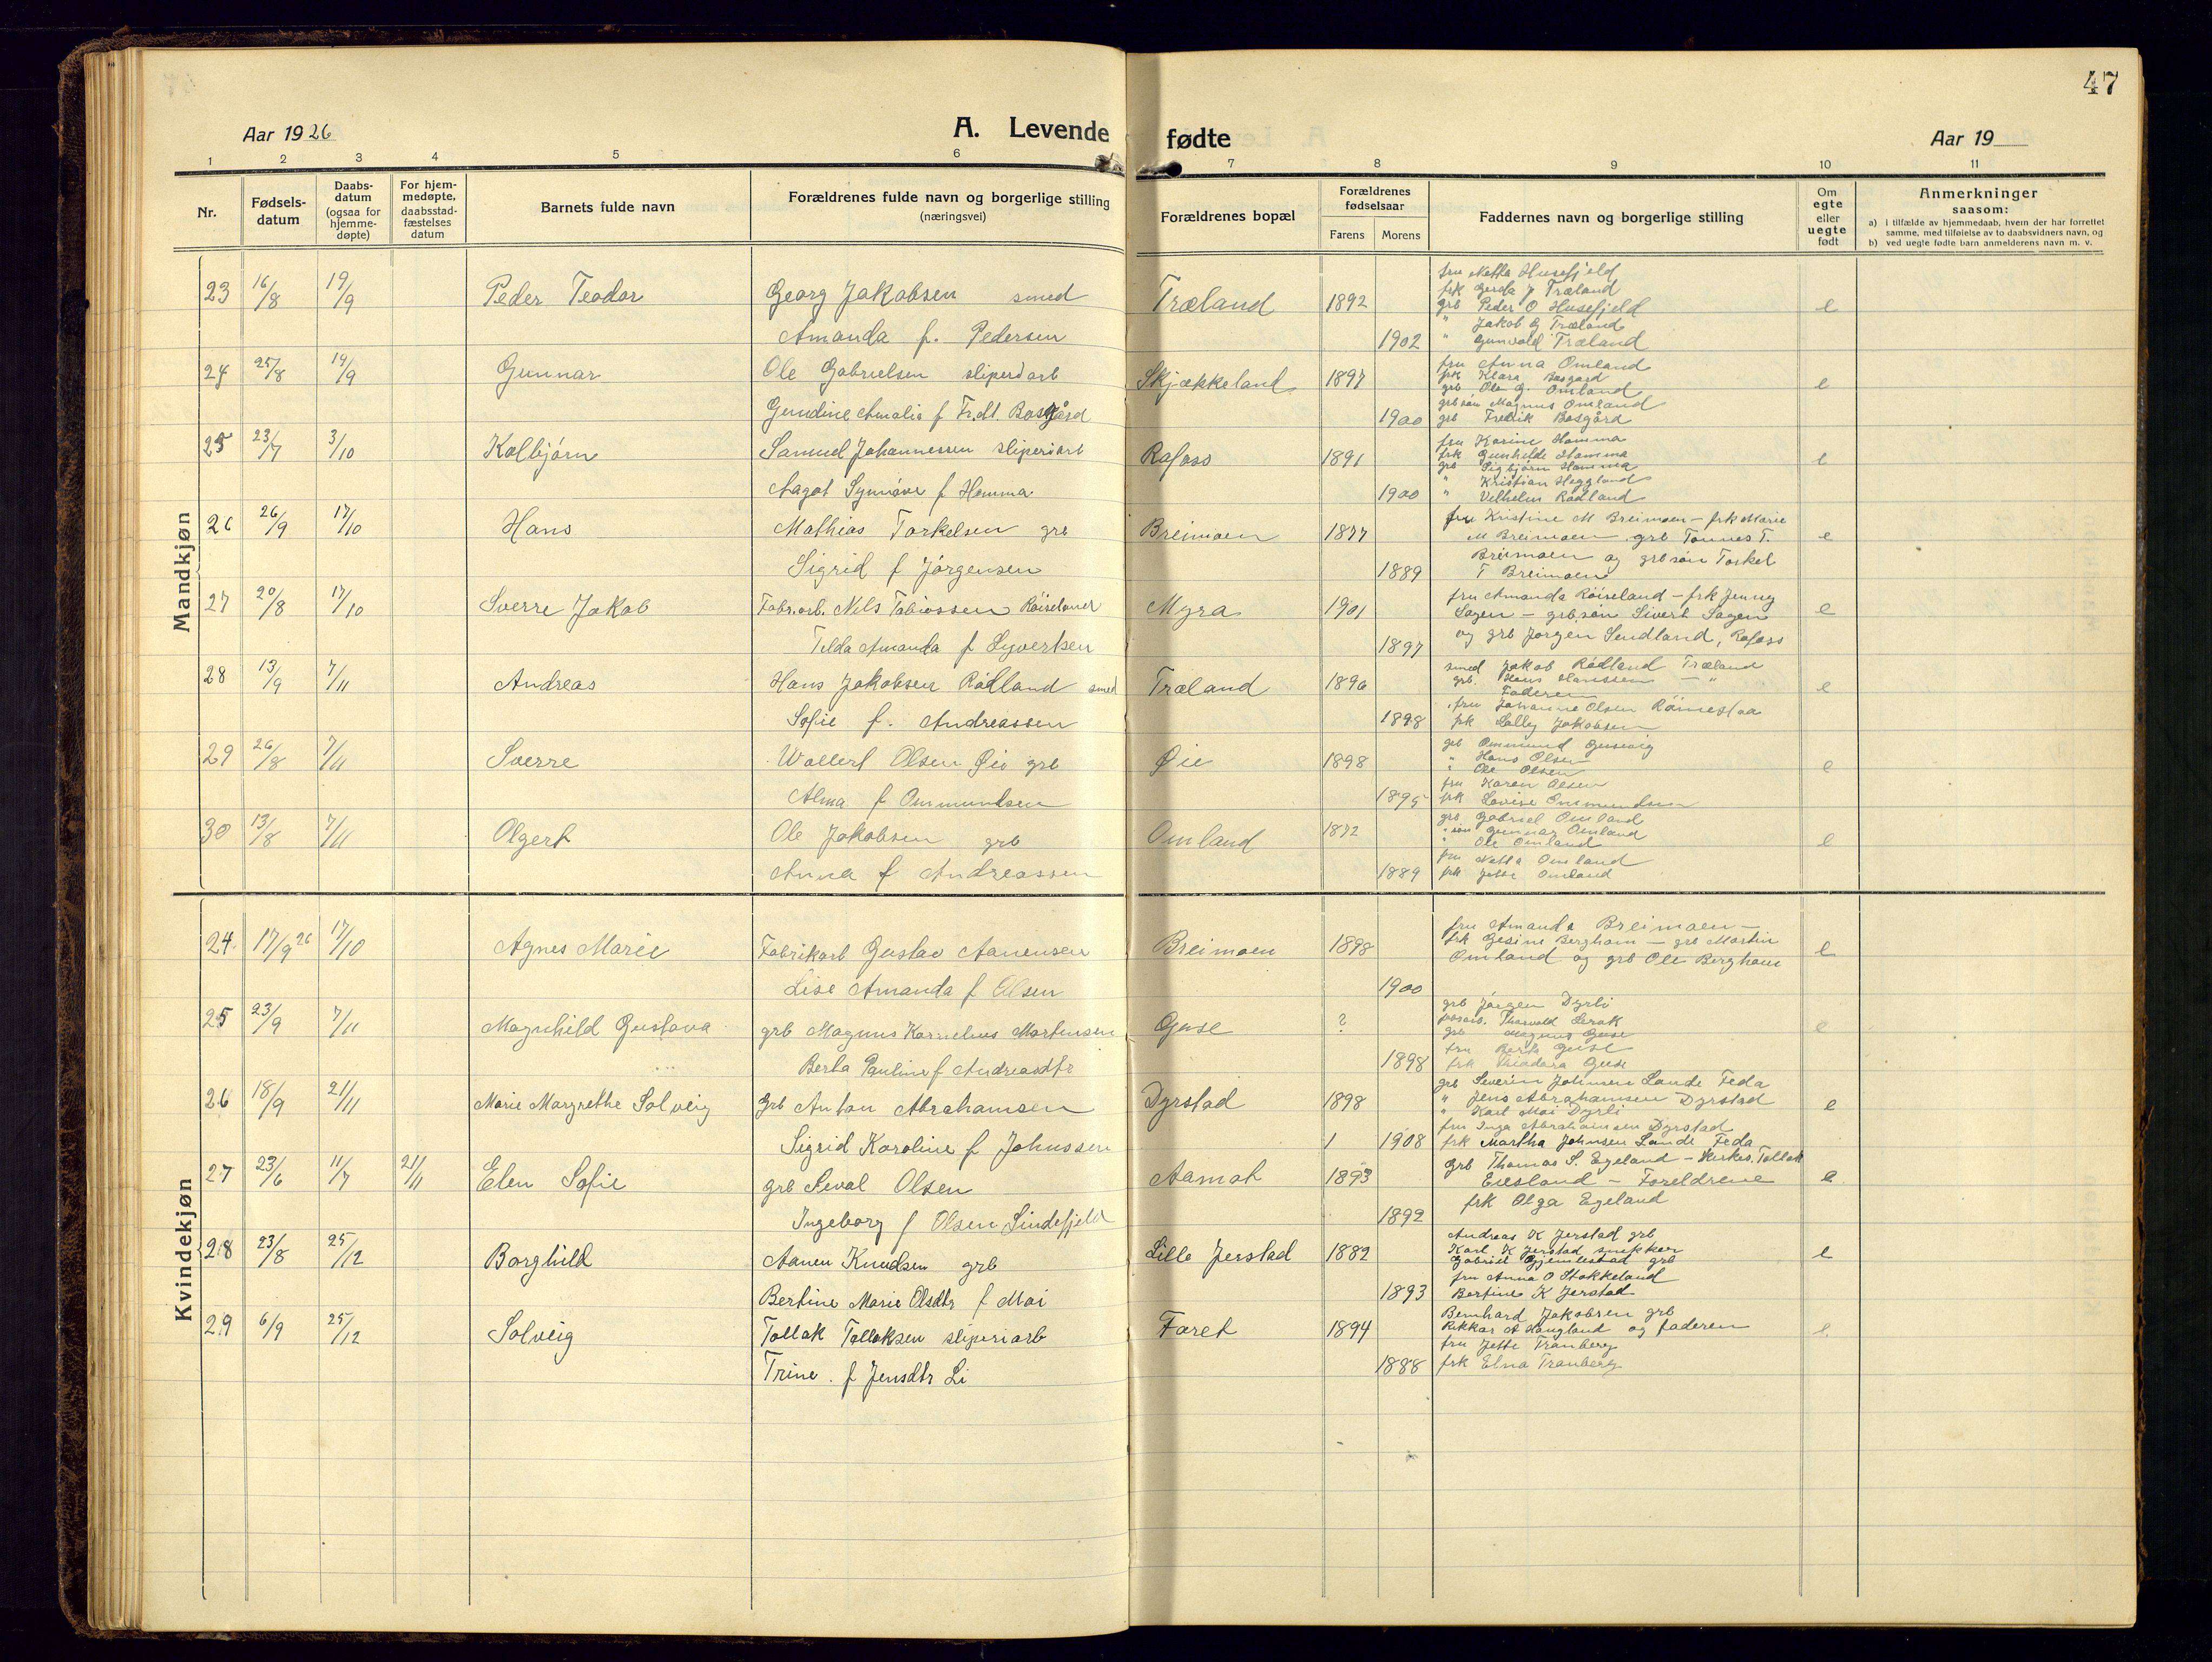 47
Aar 1926
A. Levende fødte
Aar 19
1 2 3 4 5 6 7 8 9 10 11
Nr.
Fødselsdatum
Daabsdatum (ogsaa for hjemmedøpte)
For hjemmedøpte, daabsstadfæstelses datum
Barnets fulde navn
Forældrenes fulde navn og borgerlige stilling
(næringsvei)
Forældrenes bopæl
Forældrenes fødselsaar
Farens Morens
Faddernes navn og borgerlige stilling
Om egte eller uegte født
Anmerkninger
saasom:
a) i tilfælde av hjemmedaab, hvem der har forrettet samme, med tilføielse av to daabsvidners navn, og
b) ved uegte fødte barn anmelderens navn m. v.
Mandkjøn
23 16/8 19/9 Peder Teodor Georg Jakobsen smed Træland 1892 e
Amanda f. Pedersen 1902
fru Netta Husefjeld
frk Gerda J Træland
grb Peder O Husefjeld
" Jakob G Træland
" Gunvald Træland
24 25/8 19/9 Gunnar Ole Gabrielsen sliperiarb Skjækkeland 1897 e
Gundine Amalie f Fr.dt. Bosgård 1900
fru Anna Omland
frk Klara Bosgård
grb Ole G. Omland
grb søn Magnus Omland
grb Fredrik Bosgård
25 23/7 3/10 Kolbjörn Samuel Johannessen sliperiarb Rafoss 1891 e
Aagot Synnöve f Hamma 1900
fru Karine Hamma
frk Gunhilde Hamma
grb Sigbjörn Hamma
" Kristian Heggland
" Vilhelm Rödland
26 26/9 17/10 Hans Mathias Torkelsen grb Breimoen 1877 e
Sigrid f Jörgensen 1889
fru Kristine M Breimoen – frk Marie
M Breimoen grb Tönnes T.
Breimoen og grb søn Torkel
T Breimoen
27 20/8 17/10 Sverre Jakob Fabr.arb. Nils Tobiassen Röiseland Myra 1901 e
Tilda Amanda f Syvertsen 1897
fru Amanda Röiseland – frk Jenny
Sagen – grb.søn Sivert Sagen
og grb Jörgen Sendland, Rafoss
28 13/9 7/11 Andreas Hans Jakobsen Rödland smed Træland 1896 e
Sofie f. Andreassen 1898
smed Jakob Rödland Træland
grb. Hans Hanssen – "
Faderen
fru Johanne Olsen Römestaa
frk Lally Jakobsen
29 26/8 7/11 Sverre Wollert Olsen Øie grb Øie 1898 e
Alma f Ommundsen 1895
grb Ommund Gusevig
" Hans Olsen
" Ole Olsen
fru Karen Olsen
frk Lovise Ommundsen
30 13/8 7/11 Olgert Ole Jakobsen grb Omland 1872 e
Anna f Andreassen 1889
grb Gabriel Omland
" søn Gunnar Omland
" Ole Omland
fru Netta Omland
frk Jette Omland
Kvindekjøn
24 17/9 26 17/10 Agnes Marie Fabrikarb Gustav Aanensen Breimoen 1898 e
Lise Amanda f Olsen 1900
fru Amanda Breimoen –
frk Gesine Bergham – grb Martin
Omland og grb Ole Bergham
25 23/9 7/11 Magnhild Gustava grb Magnus Kornelius Mortensen Guse ? e
Berta Pauline f Andreasdtr 1898
grb Jörgen Dyrli
Thorvald Lerak
grb Magnus Guse
fru Berta Guse
frk Theodora Guse
26 18/9 21/11 Marie Margrethe Solveig Grb Anton Abrahamsen Dyrstad 1898 e
Sigrid Karoline f Johnssen 1 1908
grb Severin Johnsen Lande Feda
" Jens Abrahamsen Dyrstad
" Karl Moi Dyrli
fru Inga Abrahamsen Dyrstad
frk Martha Johnsen Lande Feda
27 23/6 11/7 21/11 Elen Sofie grb Seval Olsen Aamot 1893 e
Ingeborg f Olsen Lindefjeld 1892
Grb Thomas S. Egeland – Kirkes. Tollak
Eiesland – Foreldrene
frk Olga Egeland
28 23/8 25/12 Borghild Aanen Knudsen grb Lille Jerstad 1882 e
Bertine Marie Olsdtr f Moi 1893
Andreas K Jerstad grb
Karl K Jerstad snekker
Gabriel Gjemlestad grb
fru Anna O Stokkeland
Bertine K Jerstad
29 6/9 25/12 Solveig Tollak Tollaksen sliperiarb Faret 1894 e.
Trine. f Jensdtr Li 1888
Bernhard Jakobsen grb
Rikkar A Haugland og faderen
fru Jette Tranberg
frk Elna Tranberg